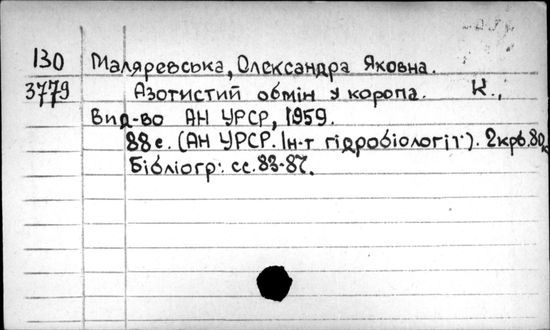 130 Маляревська, Олександра Яковна.
3779 Азотистий обмін у коропа. К.,
Вид-во АН УРСР, 1959.
88 с. (АН УРСР. Ін-т гідробіології). 2крб.80к
Бібліогр: сс. 83-87.